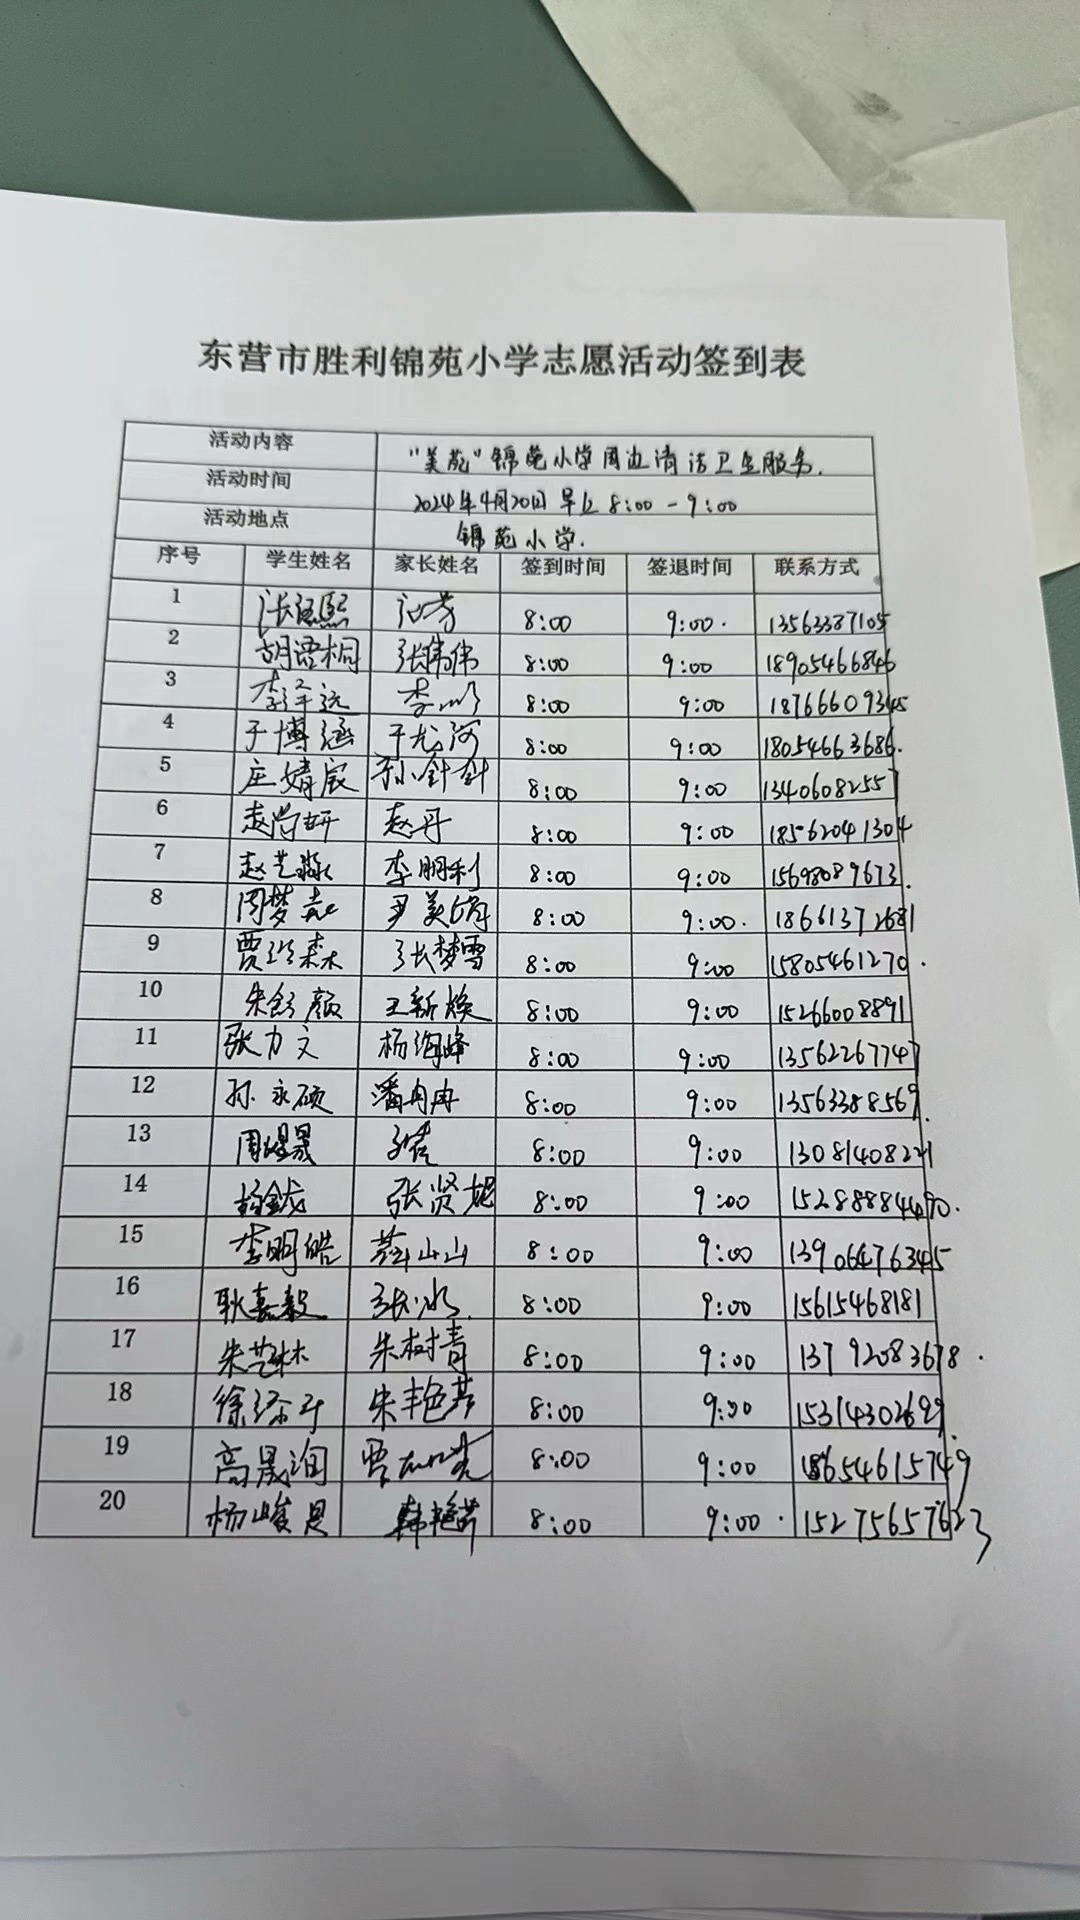 东营市胜利锦苑小学志愿活动签到表
活动内容 "美苑"锦苑小学周边清洁卫生服务.
活动时间 2024年4月20日 早上 8:00 - 9:00
活动地点 锦苑小学.
序号 学生姓名 家长姓名 签到时间 签退时间 联系方式
1 8:00 9:00. 13563387105
2 胡语桐 张伟伟 8:00 9:00 18905466846
3 李泽远 8:00 9:00 18766609345
4 于博涵 于尤河 8:00 9:00 18054663686.
5 庄婧宸 孙针针 8:00 9:00 13406082557
6 赵尚妍 赵丹 8:00 9:00 18562041304
7 赵艺淼 李朋利 8:00 9:00 15698089673.
8 周梦 尹美娟 8:00 9:00. 18661372681
9 贾 森 张梦雪 8:00 9:00 15805461270.
10 朱 颜 王新焕 8:00 9:00 15266008891
11 张力文 杨海峰 8:00 9:00 13562267747
12 孙永硕 潘冉冉 8:00 9:00 13563388569.
13 周 晟 8:00 9:00 13081408221
14 张贤妮 8:00 9:00 15288884490.
15 李明皓 山山 8:00 9:00 13906476345
16 耿嘉毅 张冰. 8:00 9:00 15615468181
17 朱艺林 朱树青 8:00 9:00 13792083678.
18 徐 朱丰艳 8:00 9:00 15314302699.
19 高晟洵 贾 8:00 9:00 18654615749
20 杨峻 韩艳 8:00 9:00. 15275657623